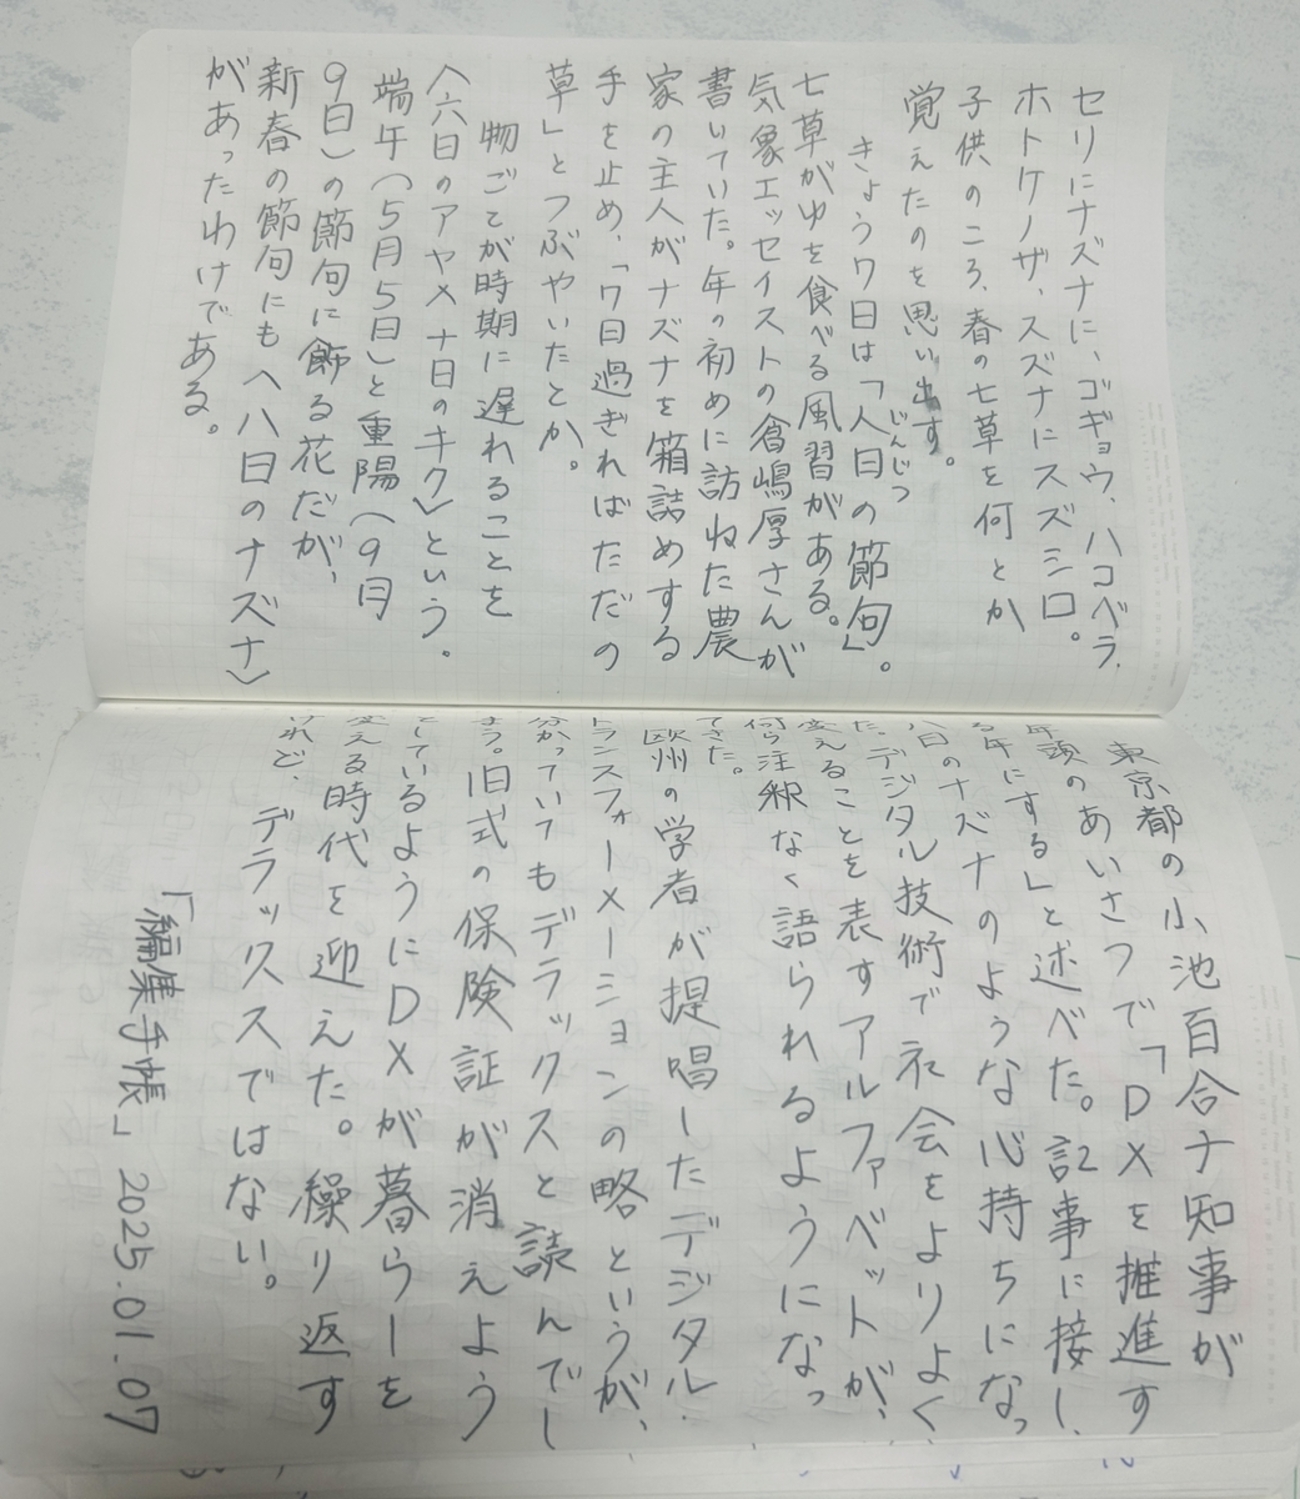 セリにナズナに、ゴギョウ、ハコベラ、
ホトケノザ、スズナにスズシロ。
子供のころ、春の七草を何とか
覚えたのを思い出す。
きょう7日は「人日の節句」。
じんじつ
七草がゆを食べる風習がある。
気象エッセイストの倉嶋厚さんが
書いていた。年の初めに訪ねた農
家の主人がナズナを箱詰めする
手を止め、「7日過ぎればただの
草」とつぶやいたとか。
物ごとが時期に遅れることを
〈六日のアヤメ十日のキク〉という。
端午(5月5日)と重陽(9月
9日)の節句に飾る花だが、
新春の節句にも〈八日のナズナ〉
があったわけである。
東京都の小池百合子知事が
年頭のあいさつで「DXを推進す
る年にする」と述べた。記事に接し、
八日のナズナのような心持ちになっ
た。デジタル技術で社会をよりよく
変えることを表すアルファベットが、
何ら注釈なく語られるようになっ
てきた。
欧州の学者が提唱したデジタル・
トランスフォーメーションの略というが、
分かっていてもデラックスと読んでし
まう。旧式の保険証が消えよう
としているようにDXが暮らしを
変える時代を迎えた。繰り返す
けれど、デラックスではない。
「編集手帳」2025.01.07